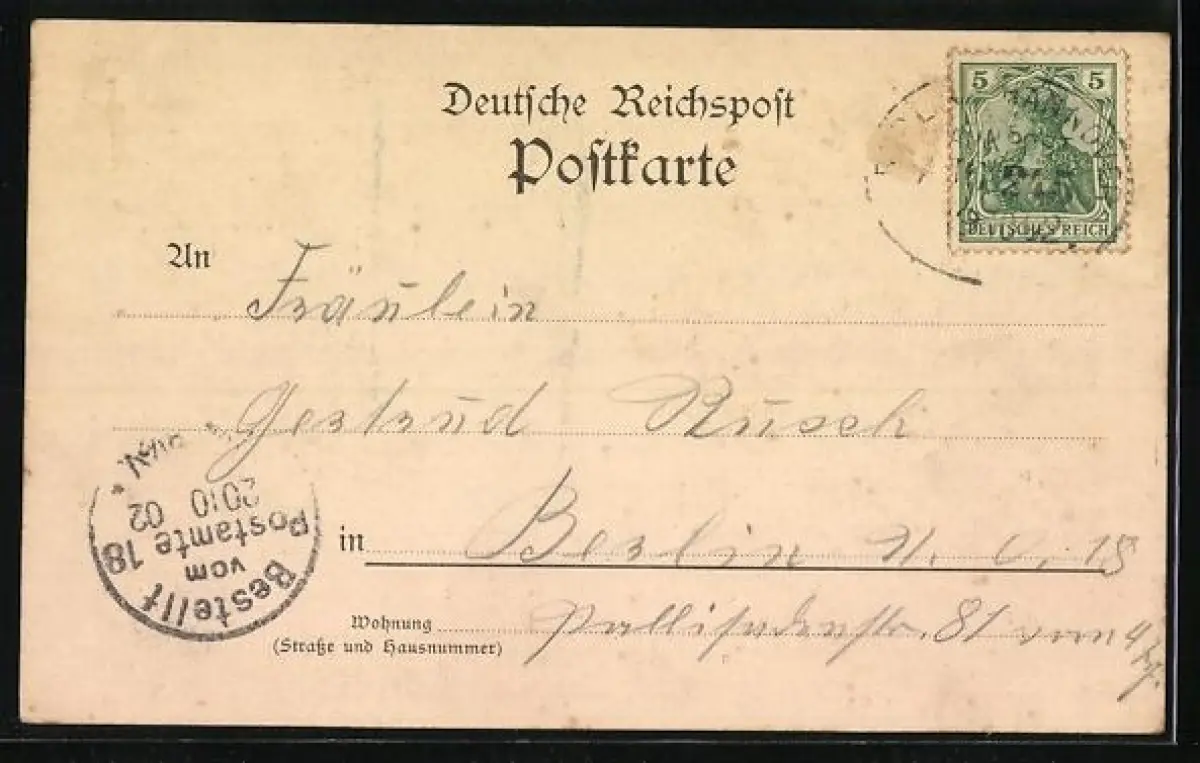 Deutsche Reichspost
Postkarte
5 5
DEUTSCHES REICH
An
Fräulein
Gertrud Rusch
in Berlin N. O. 18
Wohnung
(Straße und Hausnummer)
Pallisadenstr. 81 vorn 4
Bestellt
vom
Postamte 18
20 10 02